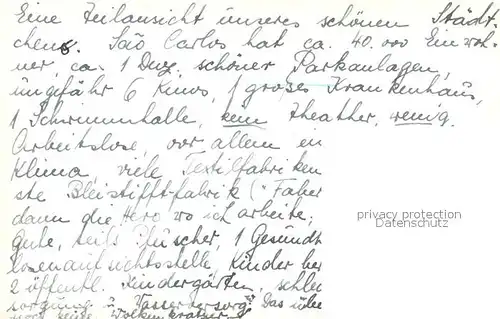 Eine Teilansicht unseres schönen Städt-
chens. São Carlos hat ca. 40.000 Einwoh-
ner, ca. 1 Duz. schöner Parkanlagen,
ungefähr 6 Kinos, 1 großes Krankenhaus,
1 Schwimmhalle, kein Theather, wenig
Arbeitslose, vor allem ein
Klima, viele Textilfabriken
ste Bleistifft-fabrik ("Faber
dann die Hero wo ich arbeite;
gute, teils Pfuscher, 1 Gesundh
losenaufsichtsstelle, Kinder
2 öffentl. Kindergärten, schle
sorgung u. Wasserversorg. Das
noch keine Wolkenkratzer
privacy protection
Datenschutz